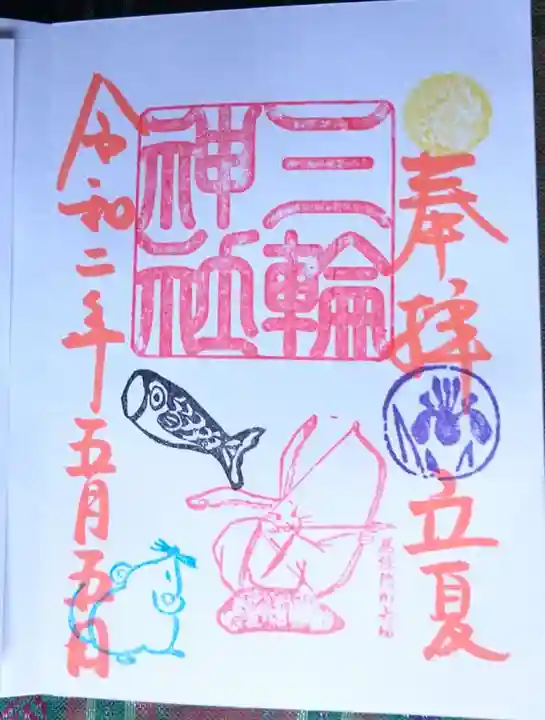 奉拝
立夏
三輪
神社
令和二年五月五日